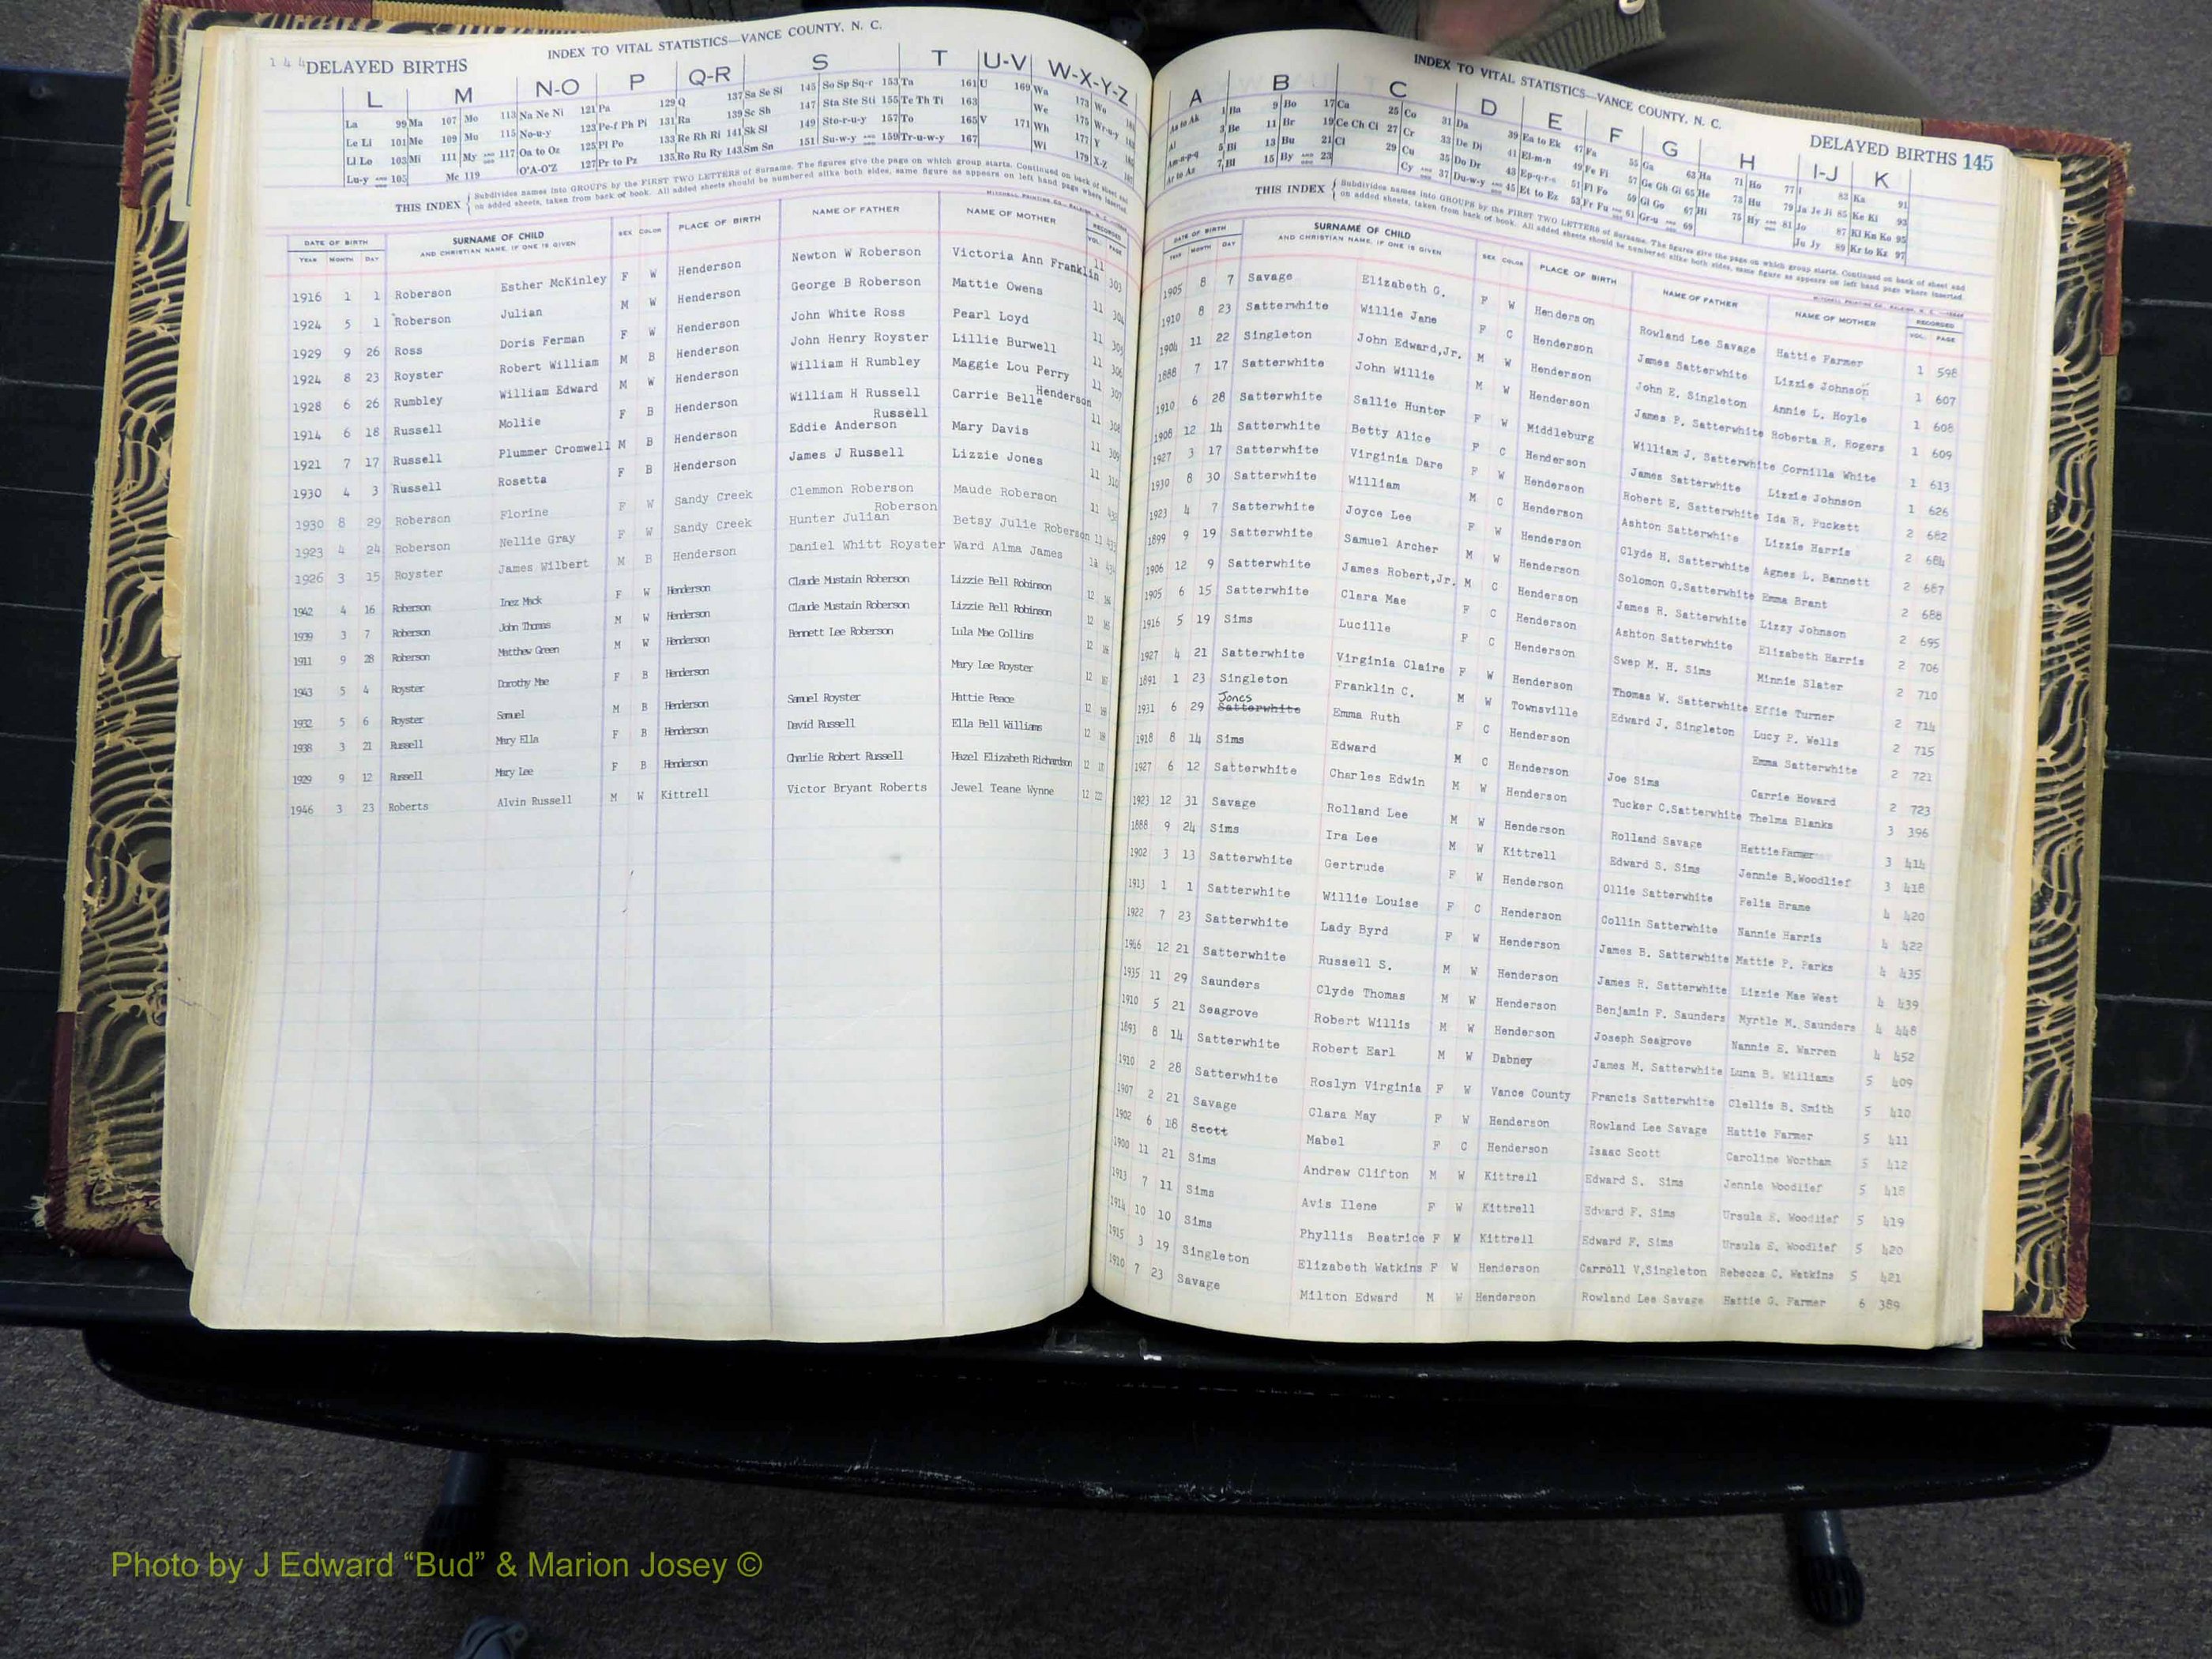 144 DELAYED BIRTHS
INDEX TO VITAL STATISTICS—VANCE COUNTY, N. C.
L M N-O P Q-R S T U-V W-X-Y-Z
La 99 Ma 107 Mo 113 Na Ne Ni 121 Pa 129 Q 137 Sa Se Si 145 So Sp Sq-r 153 Ta 161 U 169 Wa 173 Wo
Le Li 101 Me 109 Mu 115 No-u-y 123 Pe-f Ph Pi 131 Ra 139 Sc Sh 147 Sta Ste Sti 155 Te Th Ti 163 We 175 Wr-u-y
Ll Lo 103 Mi 111 My AND END 117 Oa to Oz 125 Pl Po 133 Re Rh Ri 141 Sk Sl 149 Sto-r-u-y 157 To 165 V 171 Wh 177 Y
Lu-y AND END 105 Mc 119 O'A-O'Z 127 Pr to Pz 135 Ro Ru Ry 143 Sm Sn 151 Su-w-y AND END 159 Tr-u-w-y 167 Wi 179 X-Z
THIS INDEX { Subdivides names into GROUPS by the FIRST TWO LETTERS of Surname. The figures give the page on which group starts. Continued on back of sheet and
on added sheets, taken from back of book. All added sheets should be numbered alike both sides, same figure as appears on left hand page where inserted.
DATE OF BIRTH SURNAME OF CHILD SEX COLOR PLACE OF BIRTH NAME OF FATHER NAME OF MOTHER RECORDED
YEAR MONTH DAY AND CHRISTIAN NAME, IF ONE IS GIVEN VOL. PAGE
1916 1 1 Roberson Esther McKinley F W Henderson Newton W Roberson Victoria Ann Franklin 11 303
1924 5 1 Roberson Julian M W Henderson George B Roberson Mattie Owens 11 304
1929 9 26 Ross Doris Ferman F W Henderson John White Ross Pearl Loyd 11 305
1924 8 23 Royster Robert William M B Henderson John Henry Royster Lillie Burwell 11 306
1928 6 26 Rumbley William Edward M W Henderson William H Rumbley Maggie Lou Perry 11 307
1914 6 18 Russell Mollie F B Henderson William H Russell Carrie Belle Henderson 11 308
1921 7 17 Russell Plummer Cromwell M B Henderson Eddie Anderson Russell Mary Davis 11 309
1930 4 3 Russell Rosetta F B Henderson James J Russell Lizzie Jones 11 310
1930 8 29 Roberson Florine F W Sandy Creek Clemmon Roberson Maude Roberson 11
1923 4 24 Roberson Nellie Gray F W Sandy Creek Hunter Julian Roberson Betsy Julie Roberson 11
1926 3 15 Royster James Wilbert M B Henderson Daniel Whitt Royster Ward Alma James
1942 4 16 Roberson Inez Mack F W Henderson Claude Mustain Roberson Lizzie Bell Robinson 12
1939 3 7 Roberson John Thomas M W Henderson Claude Mustain Roberson Lizzie Bell Robinson 12
1911 9 28 Roberson Matthew Green M W Henderson Bennett Lee Roberson Lula Mae Collins 12
1943 5 4 Royster Dorothy Mae F B Henderson Mary Lee Royster 12
1932 5 6 Royster Samuel M B Henderson Samuel Royster Hattie Peace 12
1938 3 21 Russell Mary Ella F B Henderson David Russell Ella Bell Williams 12
1929 9 12 Russell Mary Lee F B Henderson Charlie Robert Russell Hazel Elizabeth Richardson 12
1946 3 23 Roberts Alvin Russell M W Kittrell Victor Bryant Roberts Jewel Teane Wynne 12
INDEX TO VITAL STATISTICS—VANCE COUNTY, N. C.
DELAYED BIRTHS 145
A B C D E F G H I-J K
Aa to Ak 1 Ba 9 Bo 17 Ca 25 Co 31 Da 39 Ea to Ek 47 Fa 55 Ga 63 Ha 71 Ho 77 I 83 Ka 91
Al 3 Be 11 Br 19 Ce Ch Ci 27 Cr 33 De Di 41 El-m-n 49 Fe Fi 57 Ge Gh Gi 65 He 73 Hu 79 Ja Je Ji 85 Ke Ki 93
Am-n-p-q 5 Bi 13 Bu 21 Cl 29 Cu 35 Do Dr 43 Ep-q-r-s 51 Fl Fo 59 Gl Go 67 Hi 75 Hy AND END 81 Jo 87 Kl Kn Ko 95
Ar to Az 7 Bl 15 By AND END 23 Cy AND END 37 Du-w-y AND END 45 Et to Ez 53 Fr Fu AND END 61 Gr-u AND END 69 Ju Jy 89 Kr to Kz 97
THIS INDEX { Subdivides names into GROUPS by the FIRST TWO LETTERS of Surname. The figures give the page on which group starts. Continued on back of sheet and
on added sheets, taken from back of book. All added sheets should be numbered alike both sides, same figure as appears on left hand page where inserted.
DATE OF BIRTH SURNAME OF CHILD SEX COLOR PLACE OF BIRTH NAME OF FATHER NAME OF MOTHER RECORDED
YEAR MONTH DAY AND CHRISTIAN NAME, IF ONE IS GIVEN VOL. PAGE
1905 8 7 Savage Elizabeth G. F W Henderson Rowland Lee Savage Hattie Farmer 1 598
1910 8 23 Satterwhite Willie Jane F C Henderson James Satterwhite Lizzie Johnson 1 607
1904 11 22 Singleton John Edward,Jr. M W Henderson John E. Singleton Annie L. Hoyle 1 608
1888 7 17 Satterwhite John Willie M W Henderson James P. Satterwhite Roberta R. Rogers 1 609
1910 6 28 Satterwhite Sallie Hunter F W Middleburg William J. Satterwhite Cornilla White 1 613
1908 12 14 Satterwhite Betty Alice F C Henderson James Satterwhite Lizzie Johnson 1 626
1927 3 17 Satterwhite Virginia Dare F W Henderson Robert E. Satterwhite Ida R. Puckett 2 682
1930 8 30 Satterwhite William M C Henderson Ashton Satterwhite Lizzie Harris 2 684
1923 4 7 Satterwhite Joyce Lee F W Henderson Clyde H. Satterwhite Agnes L. Bennett 2 687
1899 9 19 Satterwhite Samuel Archer M W Henderson Solomon G.Satterwhite Emma Brant 2 688
1906 12 9 Satterwhite James Robert,Jr. M C Henderson James R. Satterwhite Lizzy Johnson 2 695
1905 6 15 Satterwhite Clara Mae F C Henderson Ashton Satterwhite Elizabeth Harris 2 706
1916 5 19 Sims Lucille F C Henderson Swep M. H. Sims Minnie Slater 2 710
1927 4 21 Satterwhite Virginia Claire F W Henderson Thomas W. Satterwhite Effie Turner 2 714
1891 1 23 Singleton Franklin C. M W Townsville Edward J. Singleton Lucy P. Wells 2 715
Jones
1931 6 29 Satterwhite Emma Ruth F C Henderson Emma Satterwhite 2 721
1918 8 14 Sims Edward M C Henderson Joe Sims Carrie Howard 2 723
1927 6 12 Satterwhite Charles Edwin M W Henderson Tucker C.Satterwhite Thelma Blanks 3 396
1923 12 31 Savage Rolland Lee M W Henderson Rolland Savage Hattie Farmer 3 414
1888 9 24 Sims Ira Lee M W Kittrell Edward S. Sims Jennie B.Woodlief 3 418
1902 3 13 Satterwhite Gertrude F W Henderson Ollie Satterwhite Felia Brame 4 420
1913 1 1 Satterwhite Willie Louise F C Henderson Collin Satterwhite Nannie Harris 4 422
1922 7 23 Satterwhite Lady Byrd F W Henderson James B. Satterwhite Mattie P. Parks 4 435
1946 12 21 Satterwhite Russell S. M W Henderson James R. Satterwhite Lizzie Mae West 4 439
1935 11 29 Saunders Clyde Thomas M W Henderson Benjamin F. Saunders Myrtle M. Saunders 4 448
1910 5 21 Seagrove Robert Willis M W Henderson Joseph Seagrove Nannie E. Warren 4 452
1893 8 14 Satterwhite Robert Earl M W Dabney James M. Satterwhite Luna B. Williams 5 409
1910 2 28 Satterwhite Roslyn Virginia F W Vance County Francis Satterwhite Clellie B. Smith 5 410
1907 2 21 Savage Clara May F W Henderson Rowland Lee Savage Hattie Farmer 5 411
1902 6 18 Scott Mabel F C Henderson Isaac Scott Caroline Wortham 5 412
1900 11 21 Sims Andrew Clifton M W Kittrell Edward S. Sims Jennie Woodlief 5 418
1913 7 11 Sims Avis Ilene F W Kittrell Edward F. Sims Ursula E. Woodlief 5 419
1914 10 10 Sims Phyllis Beatrice F W Kittrell Edward F. Sims Ursula E. Woodlief 5 420
1915 3 19 Singleton Elizabeth Watkins F W Henderson Carroll V.Singleton Rebecca C. Watkins 5 421
1910 7 23 Savage Milton Edward M W Henderson Rowland Lee Savage Hattie G. Farmer 6 389
Photo by J Edward “Bud” & Marion Josey ©